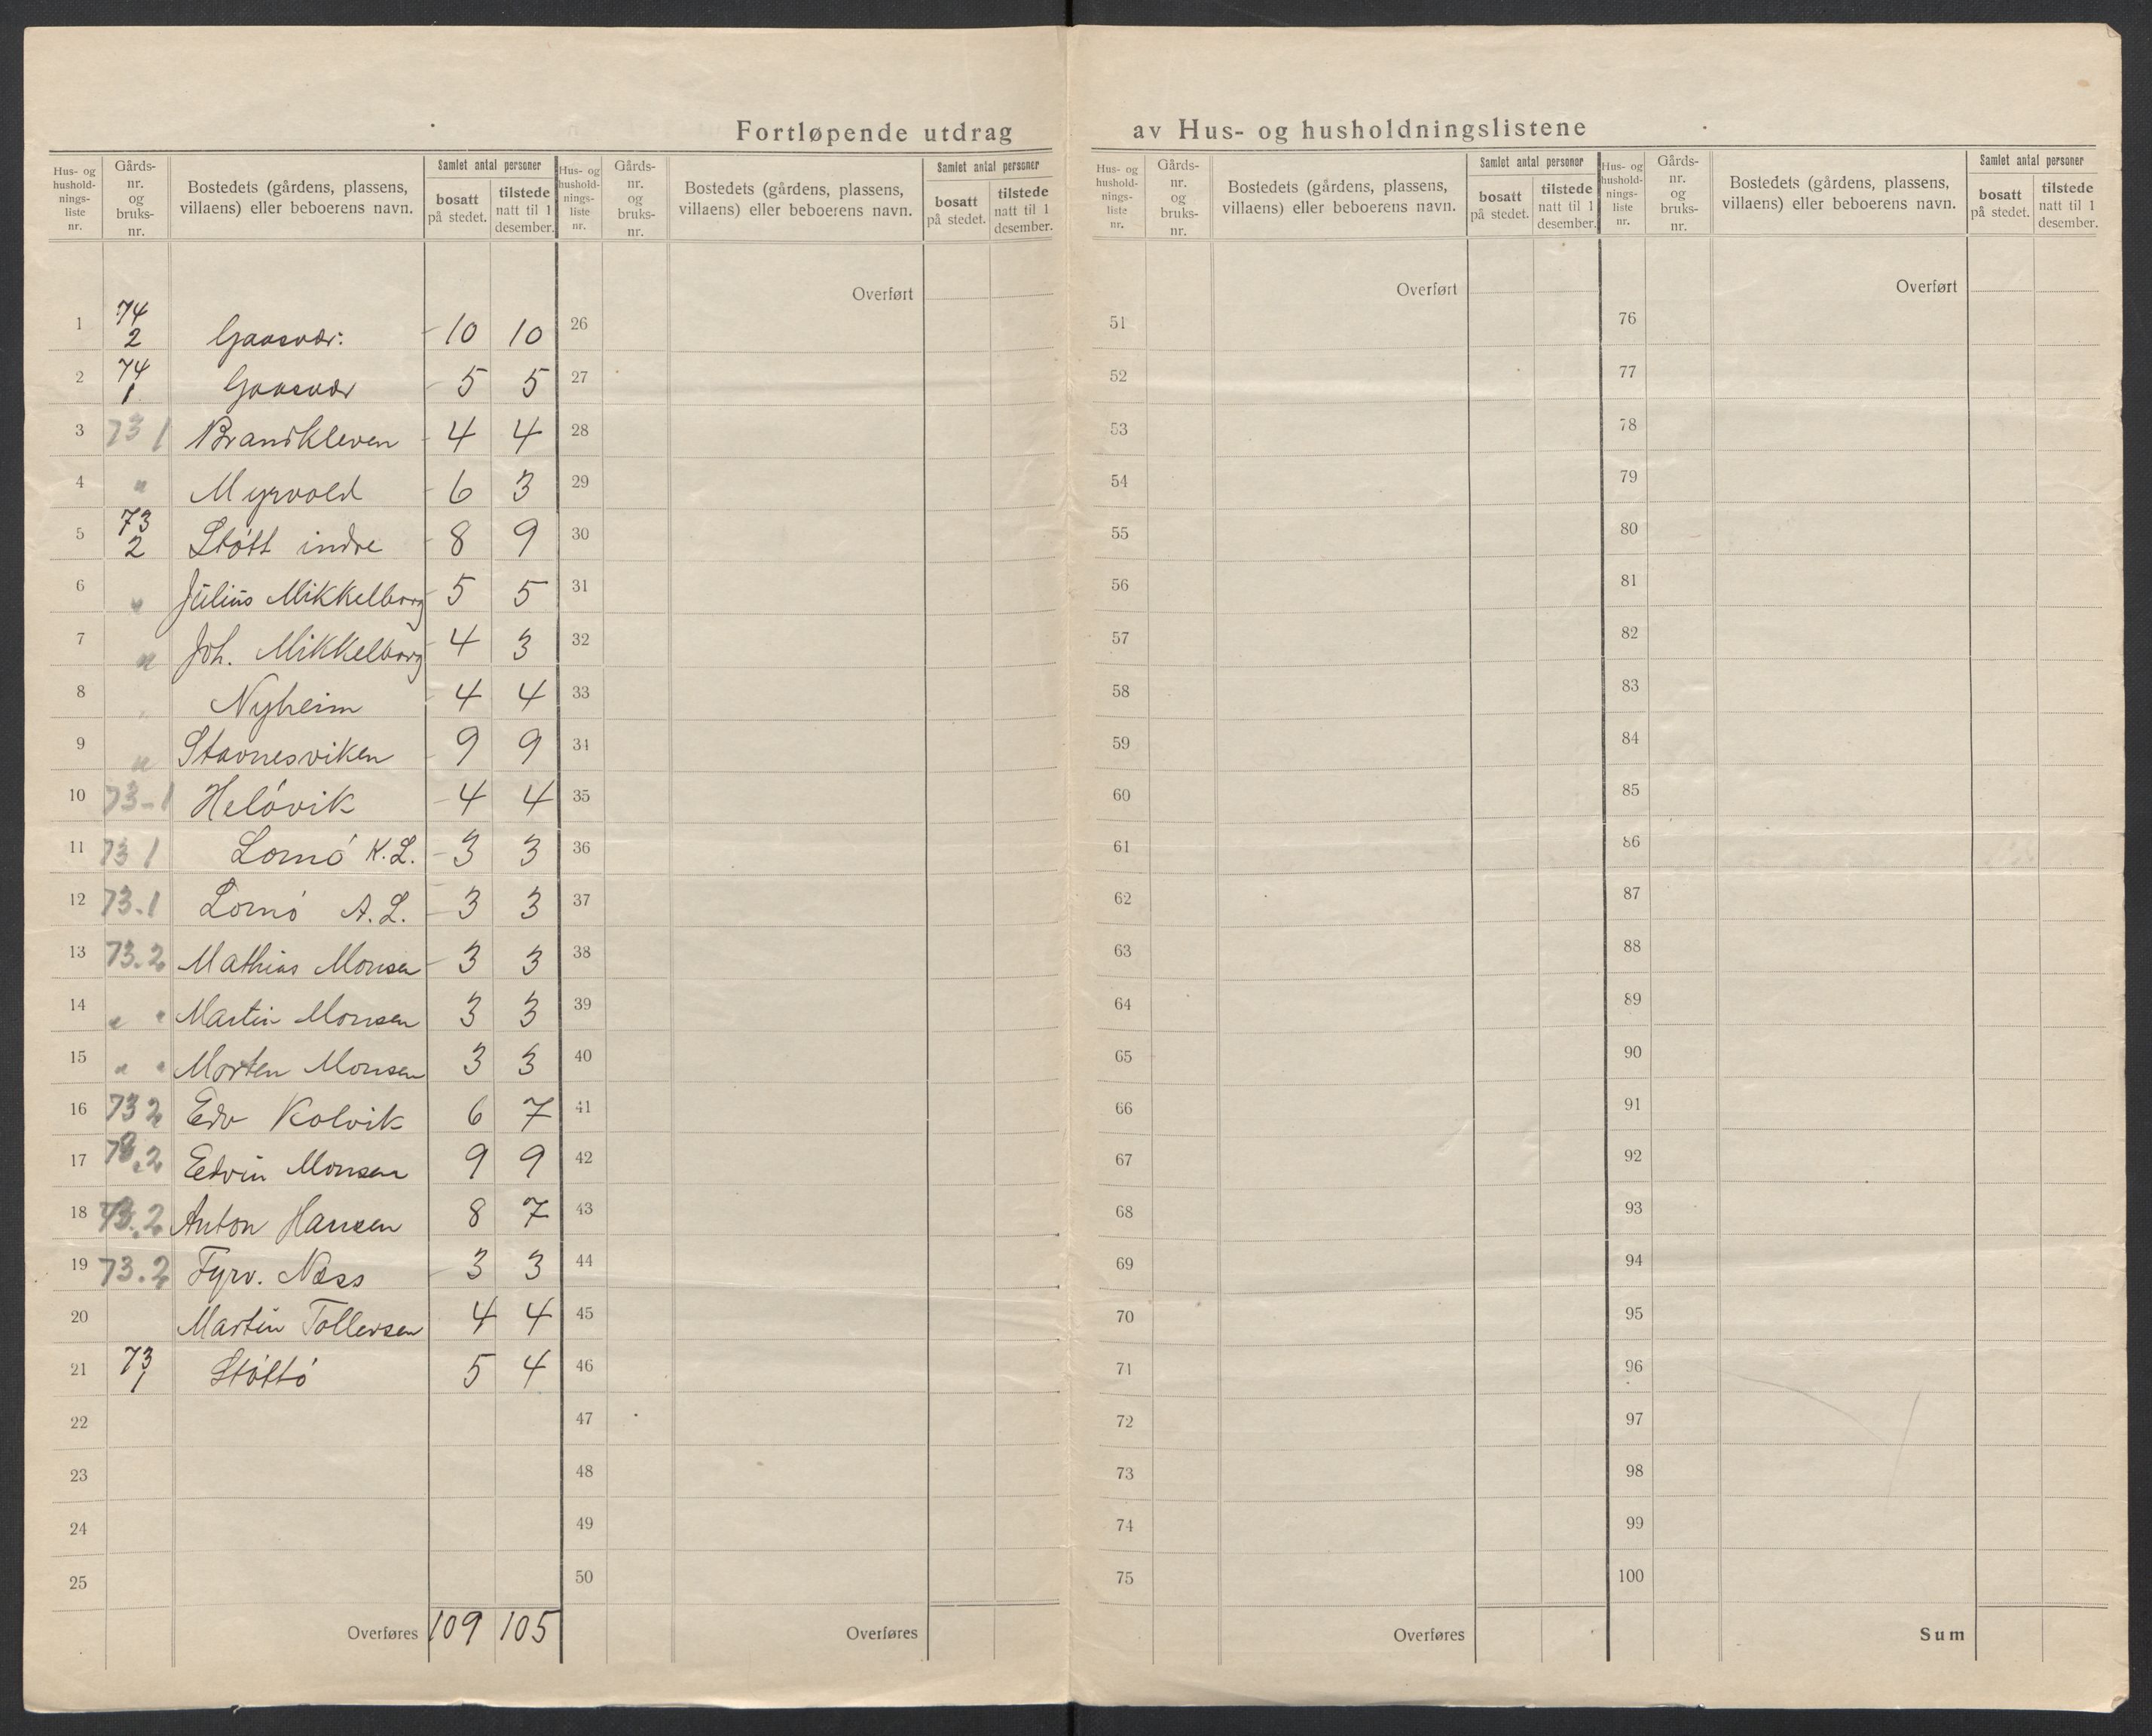 Fortløpende utdrag av Hus- og husholdningslistene
Hus- og hushold-nings-liste nr. | Gårds-nr. og bruks-nr. | Bostedets (gårdens, plassens, villaens) eller beboerens navn. | Samlet antal personer | bosatt på stedet. | tilstede natt til 1 desember.
Hus- og hushold-nings-liste nr. | Gårds-nr. og bruks-nr. | Bostedets (gårdens, plassens, villaens) eller beboerens navn. | Samlet antal personer | bosatt på stedet. | tilstede natt til 1 desember.
Hus- og hushold-nings-liste nr. | Gårds-nr. og bruks-nr. | Bostedets (gårdens, plassens, villaens) eller beboerens navn. | Samlet antal personer | bosatt på stedet. | tilstede natt til 1 desember.
Hus- og hushold-nings-liste nr. | Gårds-nr. og bruks-nr. | Bostedets (gårdens, plassens, villaens) eller beboerens navn. | Samlet antal personer | bosatt på stedet. | tilstede natt til 1 desember.
1 74 2 Gaasvær: 10 10
2 74 1 Gaasvær 5 5
3 73 1 Brandkleven 4 4
4 " Myrvold 6 3
5 73 2 Støtt indre 8 9
6 " Julius Mikkelborg 5 5
7 " Joh. Mikkelborg 4 3
8 " Nyheim 4 4
9 " Stavnesviken 9 9
10 73-1 Heløvik 4 4
11 73 1 Lornø K.L. 3 3
12 73.1 Lornø A.L. 3 3
13 73.2 Mathias Monsen 3 3
14 " " Martin Monsen 3 3
15 " " Morten Monsen 3 3
16 73 2 Edv Kolvik 6 7
17 73.2 Edvin Monsen 9 9
18 73.2 Anton Hansen 8 7
19 73.2 Fyrv. Næss 3 3
20 Martin Tollersen 4 4
21 73 1 Støttø 5 4
22
23
24
25
Overføres 109 105
Overført
26
27
28
29
30
31
32
33
34
35
36
37
38
39
40
41
42
43
44
45
46
47
48
49
50
Overføres
Overført
51
52
53
54
55
56
57
58
59
60
61
62
63
64
65
66
67
68
69
70
71
72
73
74
75
Overføres
Overført
76
77
78
79
80
81
82
83
84
85
86
87
88
89
90
91
92
93
94
95
96
97
98
99
100
Sum